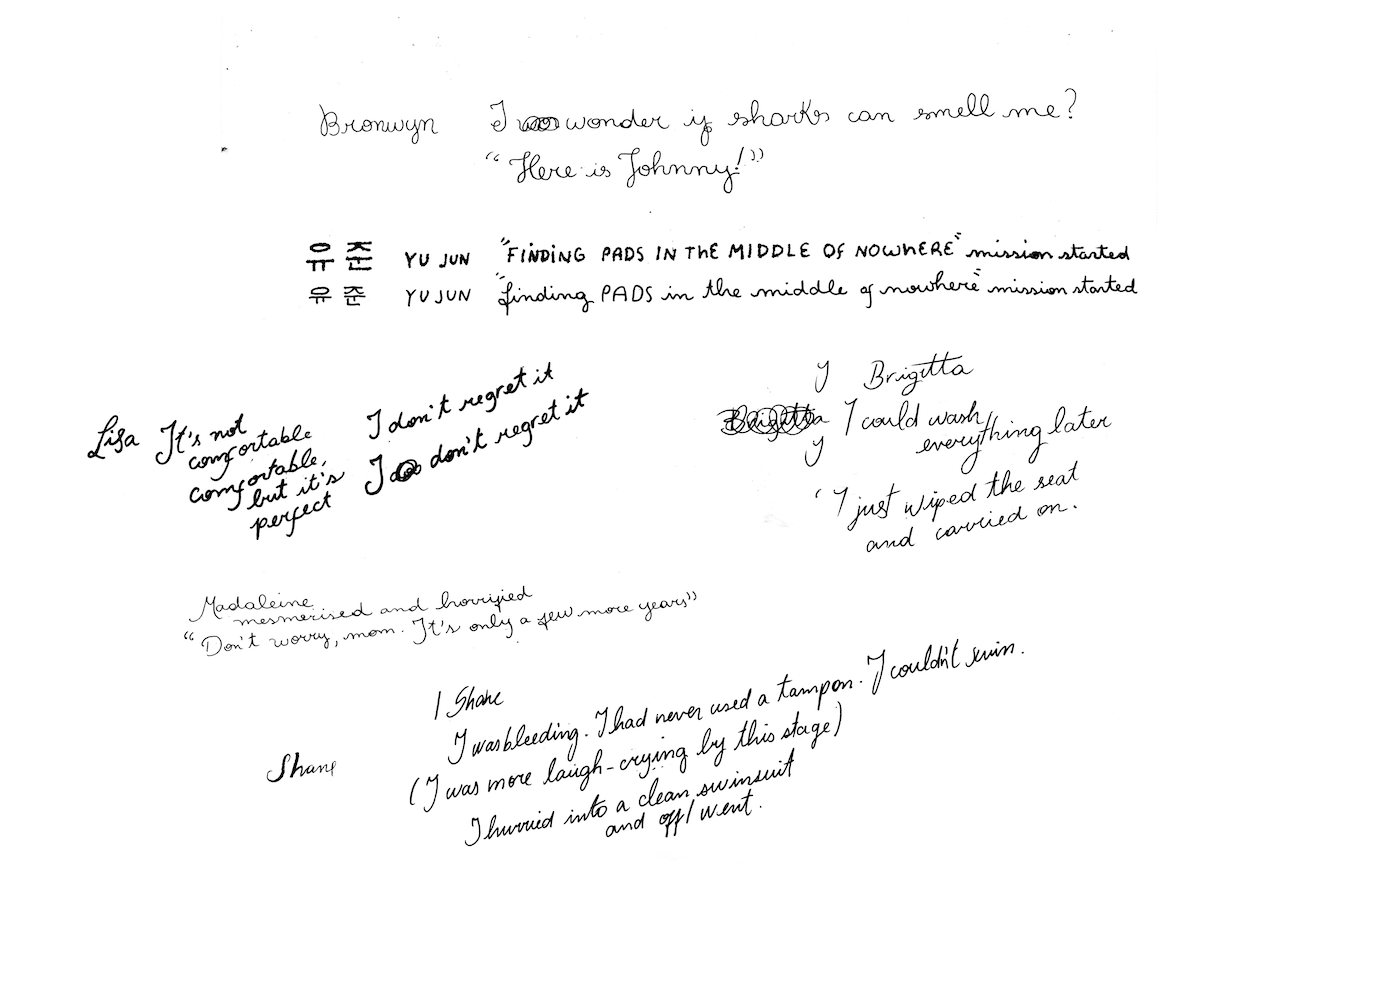 Bronwyn I wonder if sharks can smell me?
"Here is Johnny!"
유준 YU JUN "FINDING PADS IN THE MIDDLE OF NOWHERE" mission started
유준 YU JUN "finding PADS in the middle of nowhere" mission started
Lisa It's not
comfortable
comfortable,
but it's
perfect
I don't regret it
I don't regret it
y Brigitta
Brigitta I could wash
everything later
y
'I just wiped the seat
and carried on.
Madaleine
mesmerised and horrified
"Don't worry, mom. It's only a few more years"
I Shane
I was bleeding. I had never used a tampon. I couldn't swim.
Shane
(I was more laugh-crying by this stage)
I hurried into a clean swimsuit
and off I went.